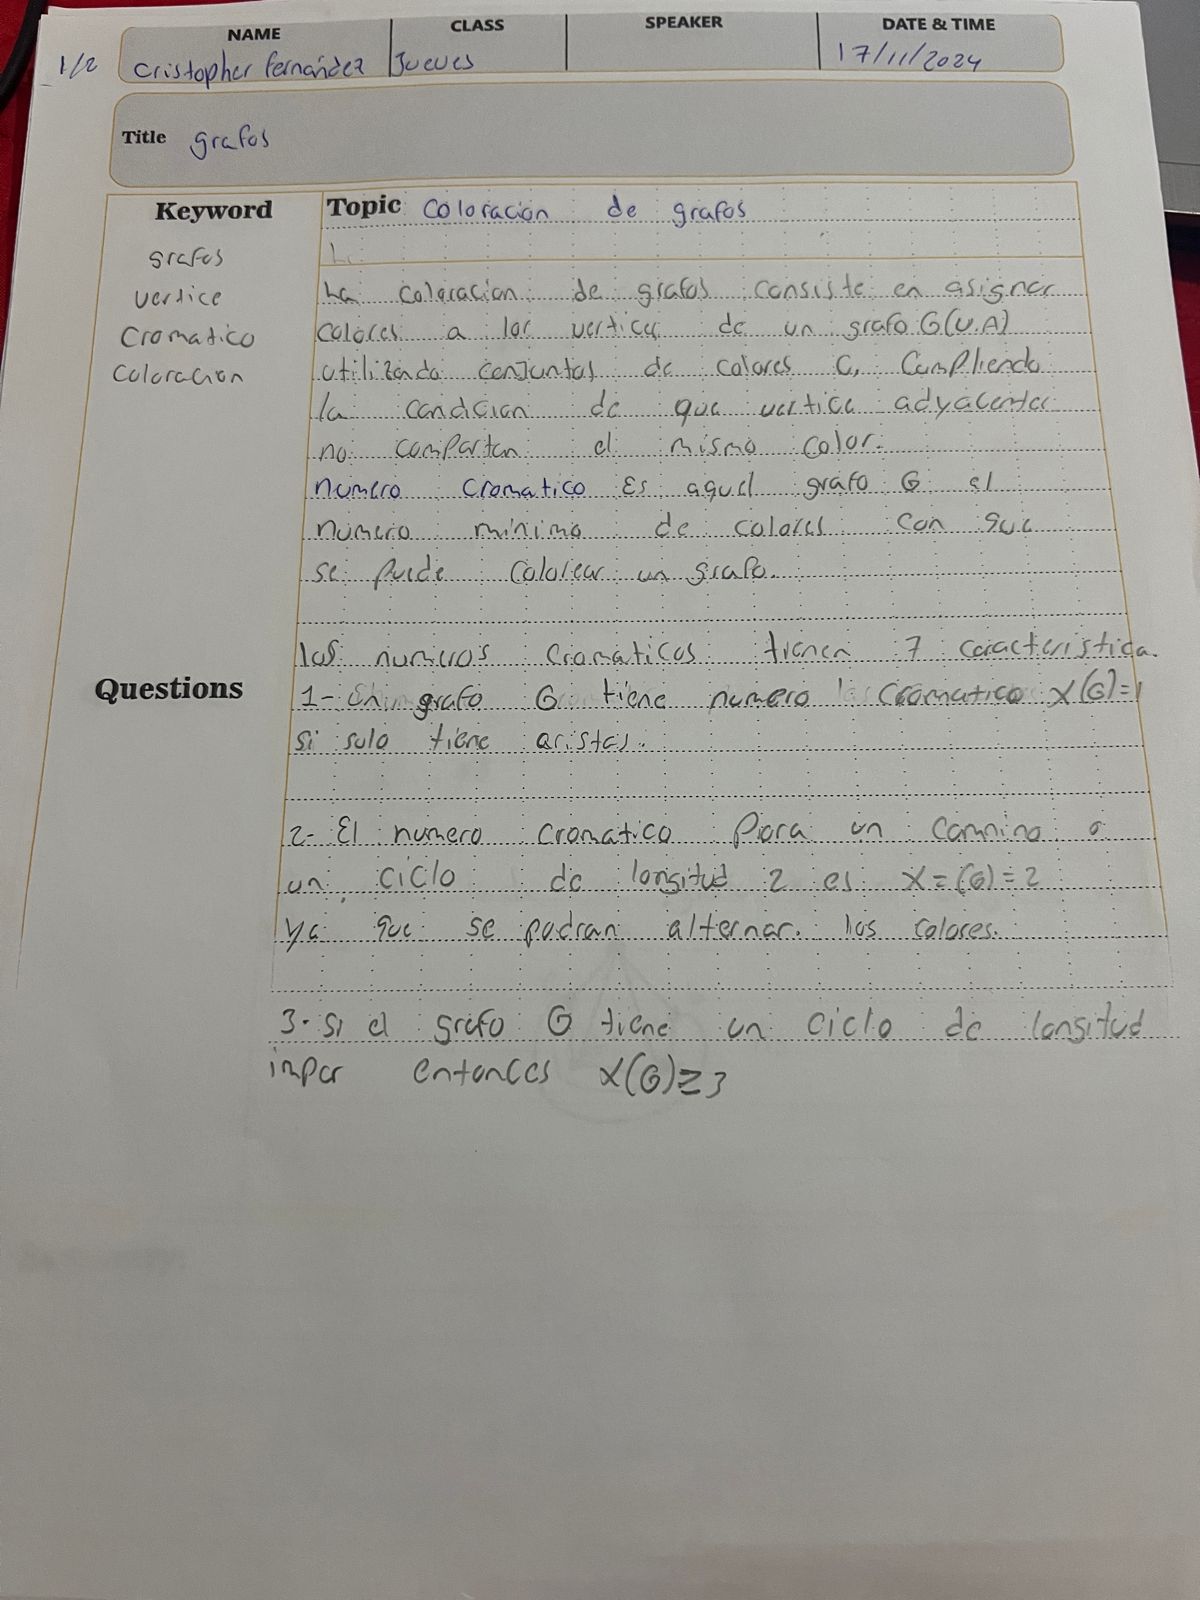 NAME CLASS SPEAKER DATE & TIME
1/2 Cristopher Fernández Jueves 17/11/2024
Title grafos
Keyword
grafos
vertice
Cromatico
Coloracion
Topic Coloración de grafos
La coloracion de grafos consiste en asignar
colores a los vertices de un grafo G(V.A)
utilizado conjuntos de colores C, Cumpliendo
la condicion de que vertice adyacentes
no compartan el mismo color.
numero cromatico Es aquel grafo G el
numero minimo de colores con que
se puede colorear un grafo.
los numeros cromáticos tienen 7 caracteristica.
Questions
1- grafo G tiene numero cromatico X(G)=1
si solo tiene aristas.
2- El numero cromatico para un camnino o
un ciclo de longitud 2 es X=(G)=2
ya que se podran alternar. los colores.
3- Si el grafo G tiene un ciclo de longitud
impar entonces X(G)≥3